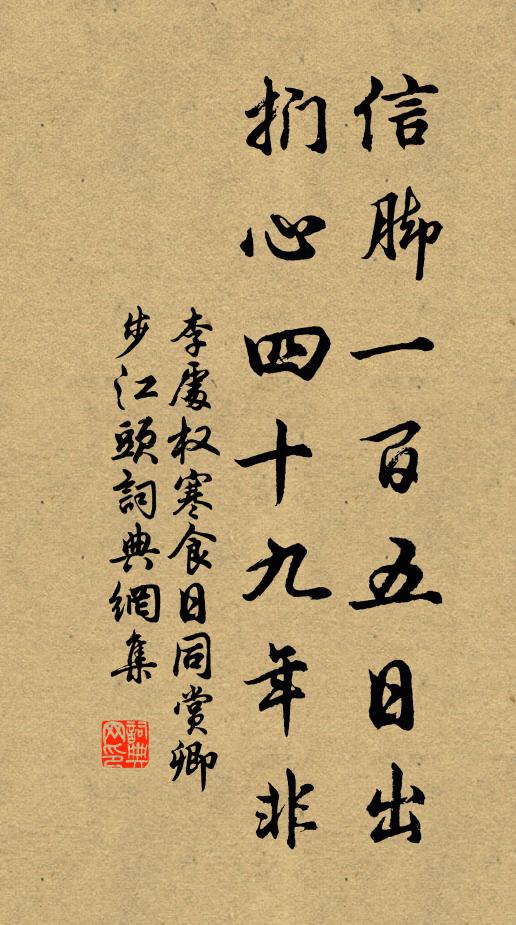 信脚一百五日出
捫心四十九年非
李處权寒食日同賞卿
步江頭詞典網集
詞典网印